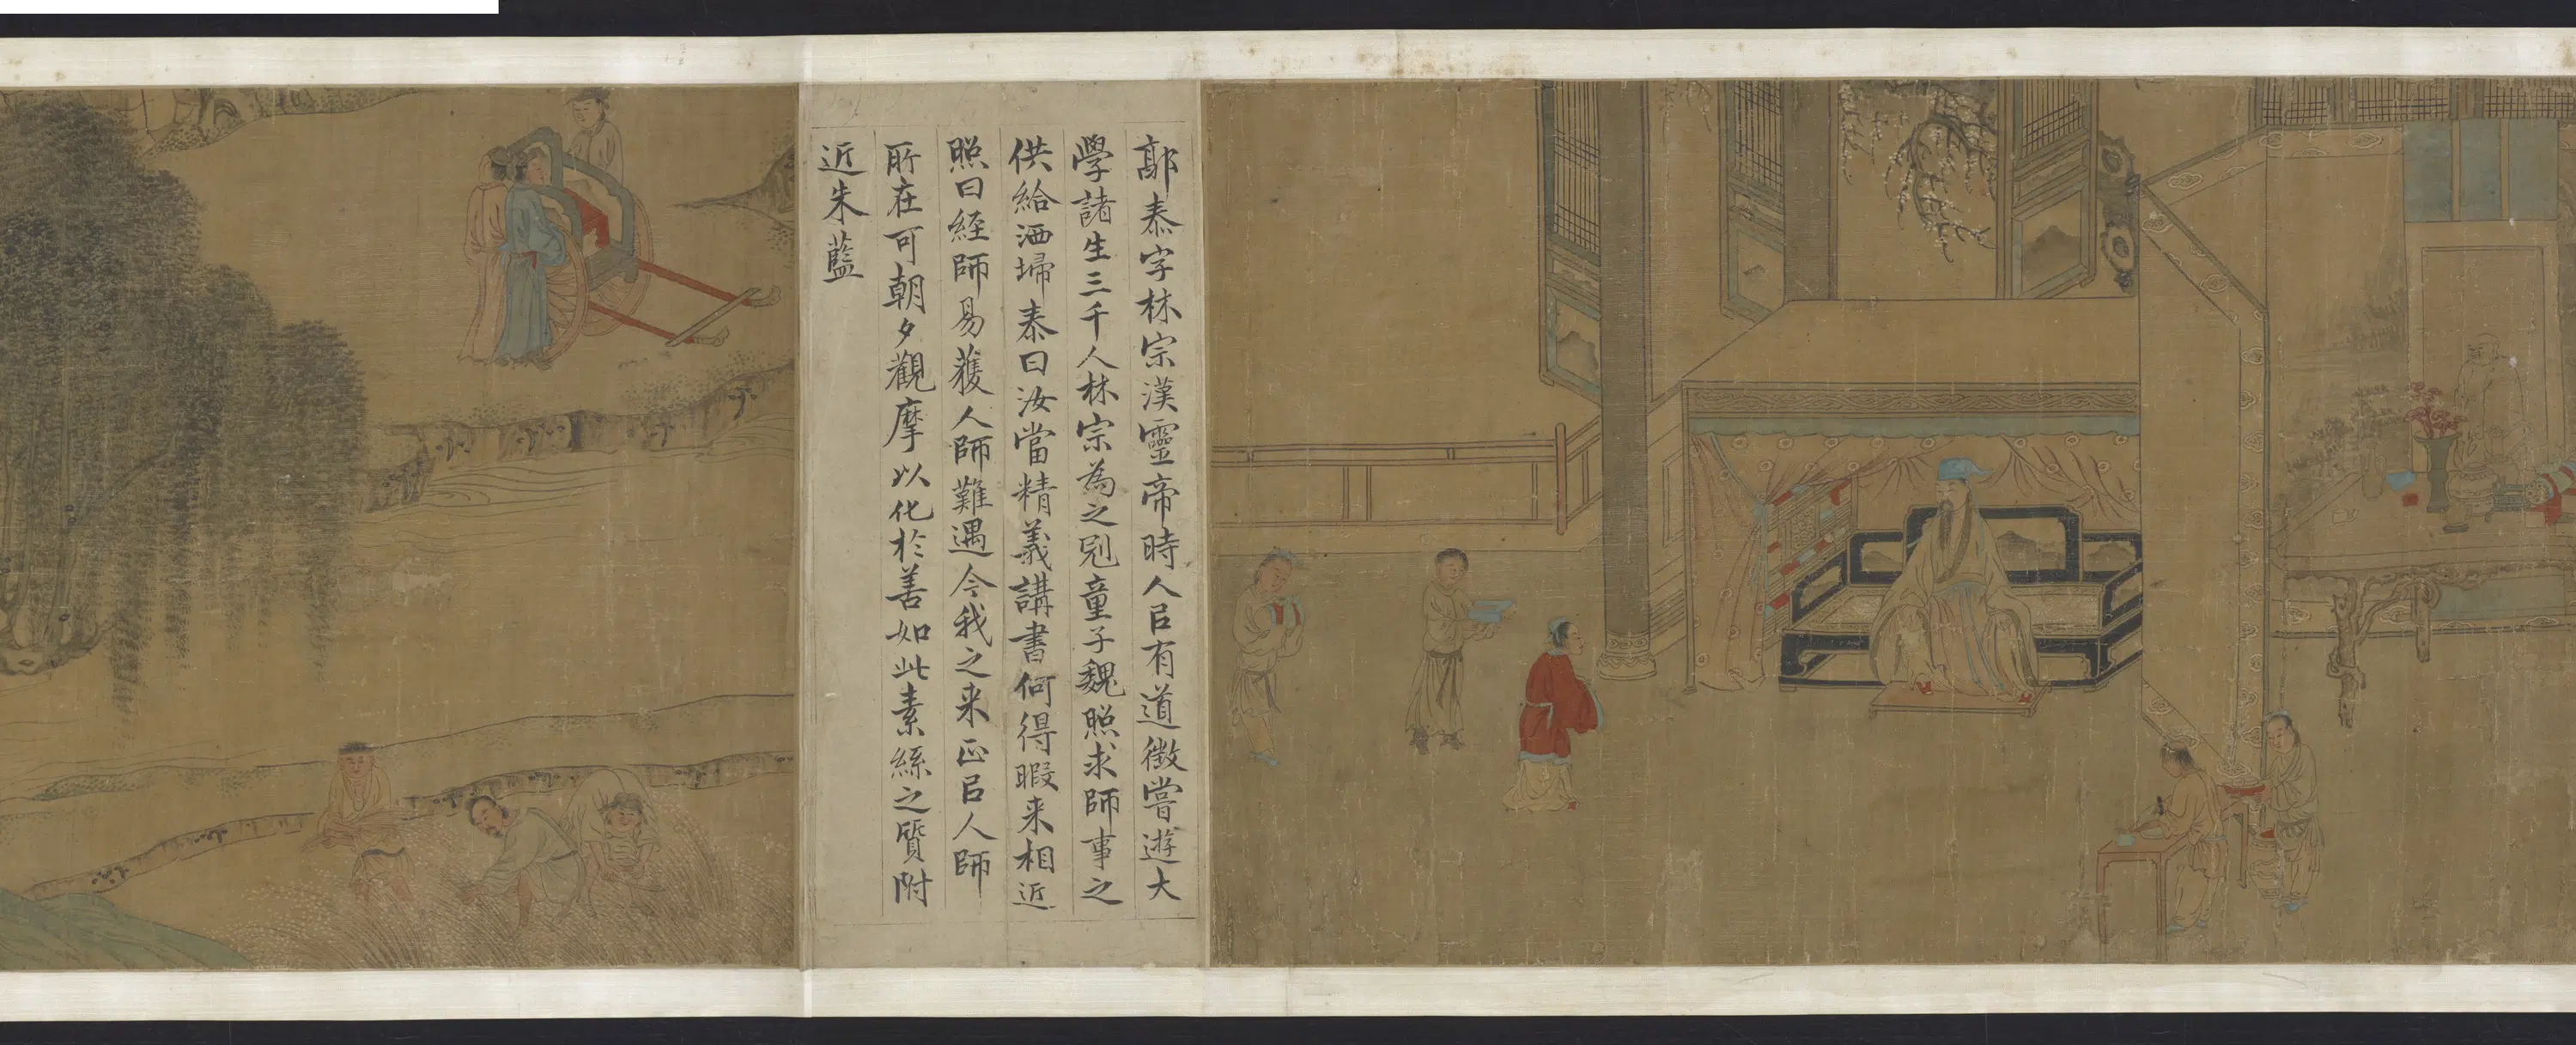 郭泰字林宗漢靈帝時人㠯有道徵嘗遊大
學諸生三千人林宗為之冠童子魏照求師事之
供給洒埽泰曰汝當精義講書何得暇来相近
照曰經師易獲人師難遇今我之来正㠯人師
所在可朝夕觀摩以化於善如此素絲之質附
近朱藍